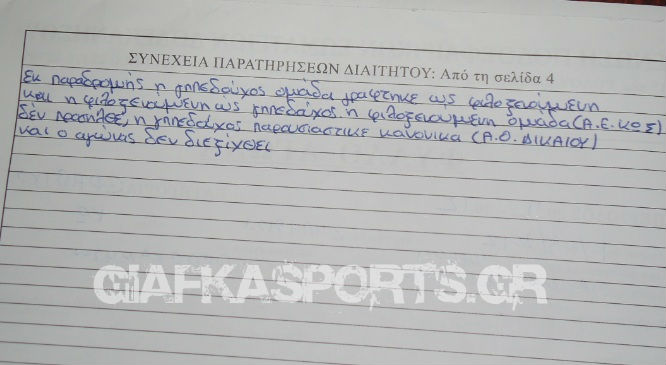 ΣΥΝΕΧΕΙΑ ΠΑΡΑΤΗΡΗΣΕΩΝ ΔΙΑΙΤΗΤΟΥ: Από τη σελίδα 4
Εκ παραδρομής η γηπεδούχος ομάδα γράφτηκε ως φιλοξενούμενη
και η φιλοξενουμενη ως γηπεδούχος. η φιλοξενουμενη ομάδα (Α.Ε. ΚΩΣ)
δέν προσηλθε, η γηπεδούχος παρουσιαστικε κανονικα (Α.Ο. ΔΙΚΑΙΟΥ)
και ο αγώνας δεν διεξίχθει
GIAFKASPORTS.GR